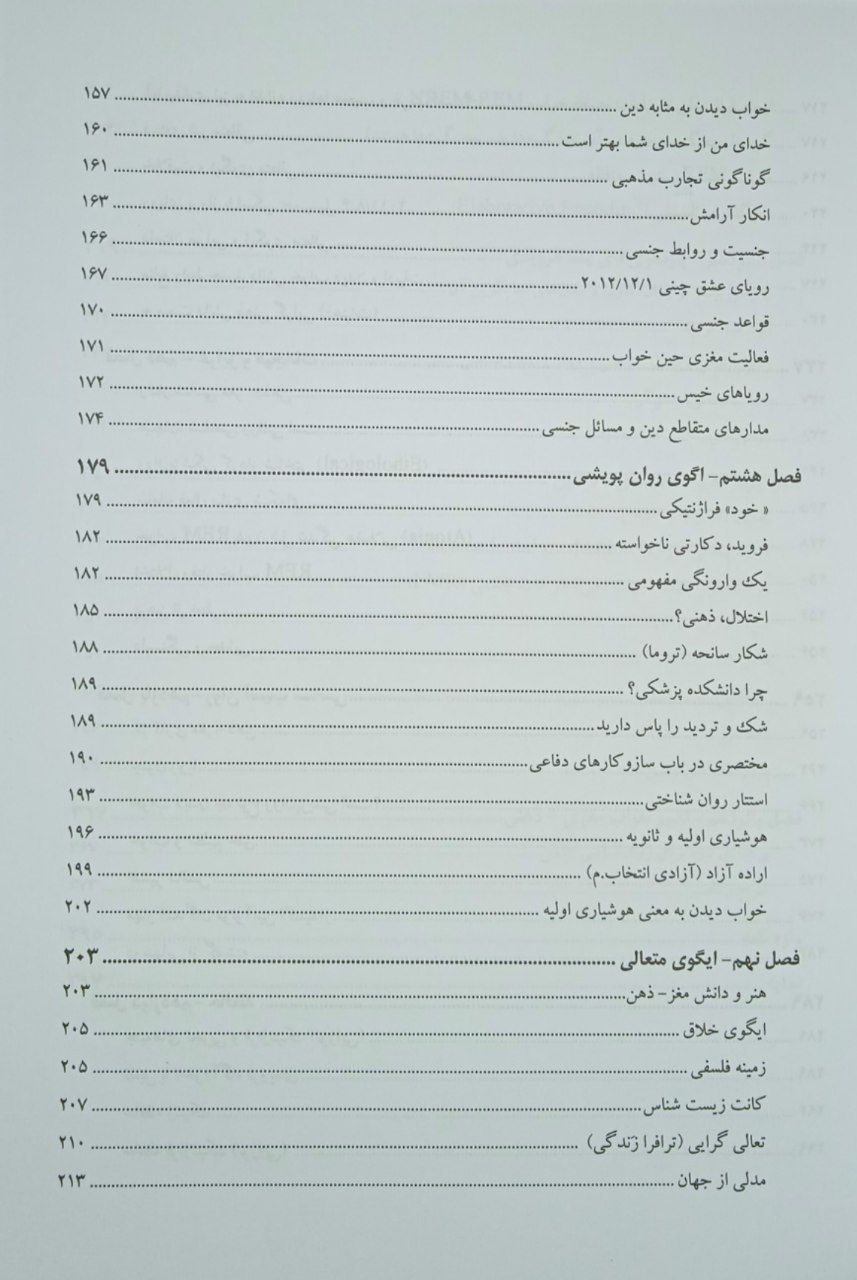 خواب دیدن به مثابه دین ........ ۱۵۷
خدای من از خدای شما بهتر است ........ ۱۶۰
گوناگونی تجارب مذهبی ........ ۱۶۱
انکار آرامش ........ ۱۶۳
جنسیت و روابط جنسی ........ ۱۶۶
رویای عشق چینی ۲۰۱۲/۱۲/۱ ........ ۱۶۷
قواعد جنسی ........ ۱۷۰
فعالیت مغزی حین خواب ........ ۱۷۱
رویاهای خیس ........ ۱۷۲
مدارهای متقاطع دین و مسائل جنسی ........ ۱۷۴
فصل هشتم- اگوی روان پویشی ........ ۱۷۹
« خود» فراژنتیکی ........ ۱۷۹
فروید، دکارتی ناخواسته ........ ۱۸۲
یک وارونگی مفهومی ........ ۱۸۲
اختلال، ذهنی؟ ........ ۱۸۵
شکار سانحه (تروما) ........ ۱۸۸
چرا دانشکده پزشکی؟ ........ ۱۸۹
شک و تردید را پاس دارید ........ ۱۸۹
مختصری در باب سازوکارهای دفاعی ........ ۱۹۰
استتار روان شناختی ........ ۱۹۳
هوشیاری اولیه و ثانویه ........ ۱۹۶
اراده آزاد (آزادی انتخاب.م) ........ ۱۹۹
خواب دیدن به معنی هوشیاری اولیه ........ ۲۰۲
فصل نهم- ایگوی متعالی ........ ۲۰۳
هنر و دانش مغز- ذهن ........ ۲۰۳
ایگوی خلاق ........ ۲۰۵
زمینه فلسفی ........ ۲۰۵
کانت زیست شناس ........ ۲۰۷
تعالی گرایی (ترافرا زندگی) ........ ۲۱۰
مدلی از جهان ........ ۲۱۳